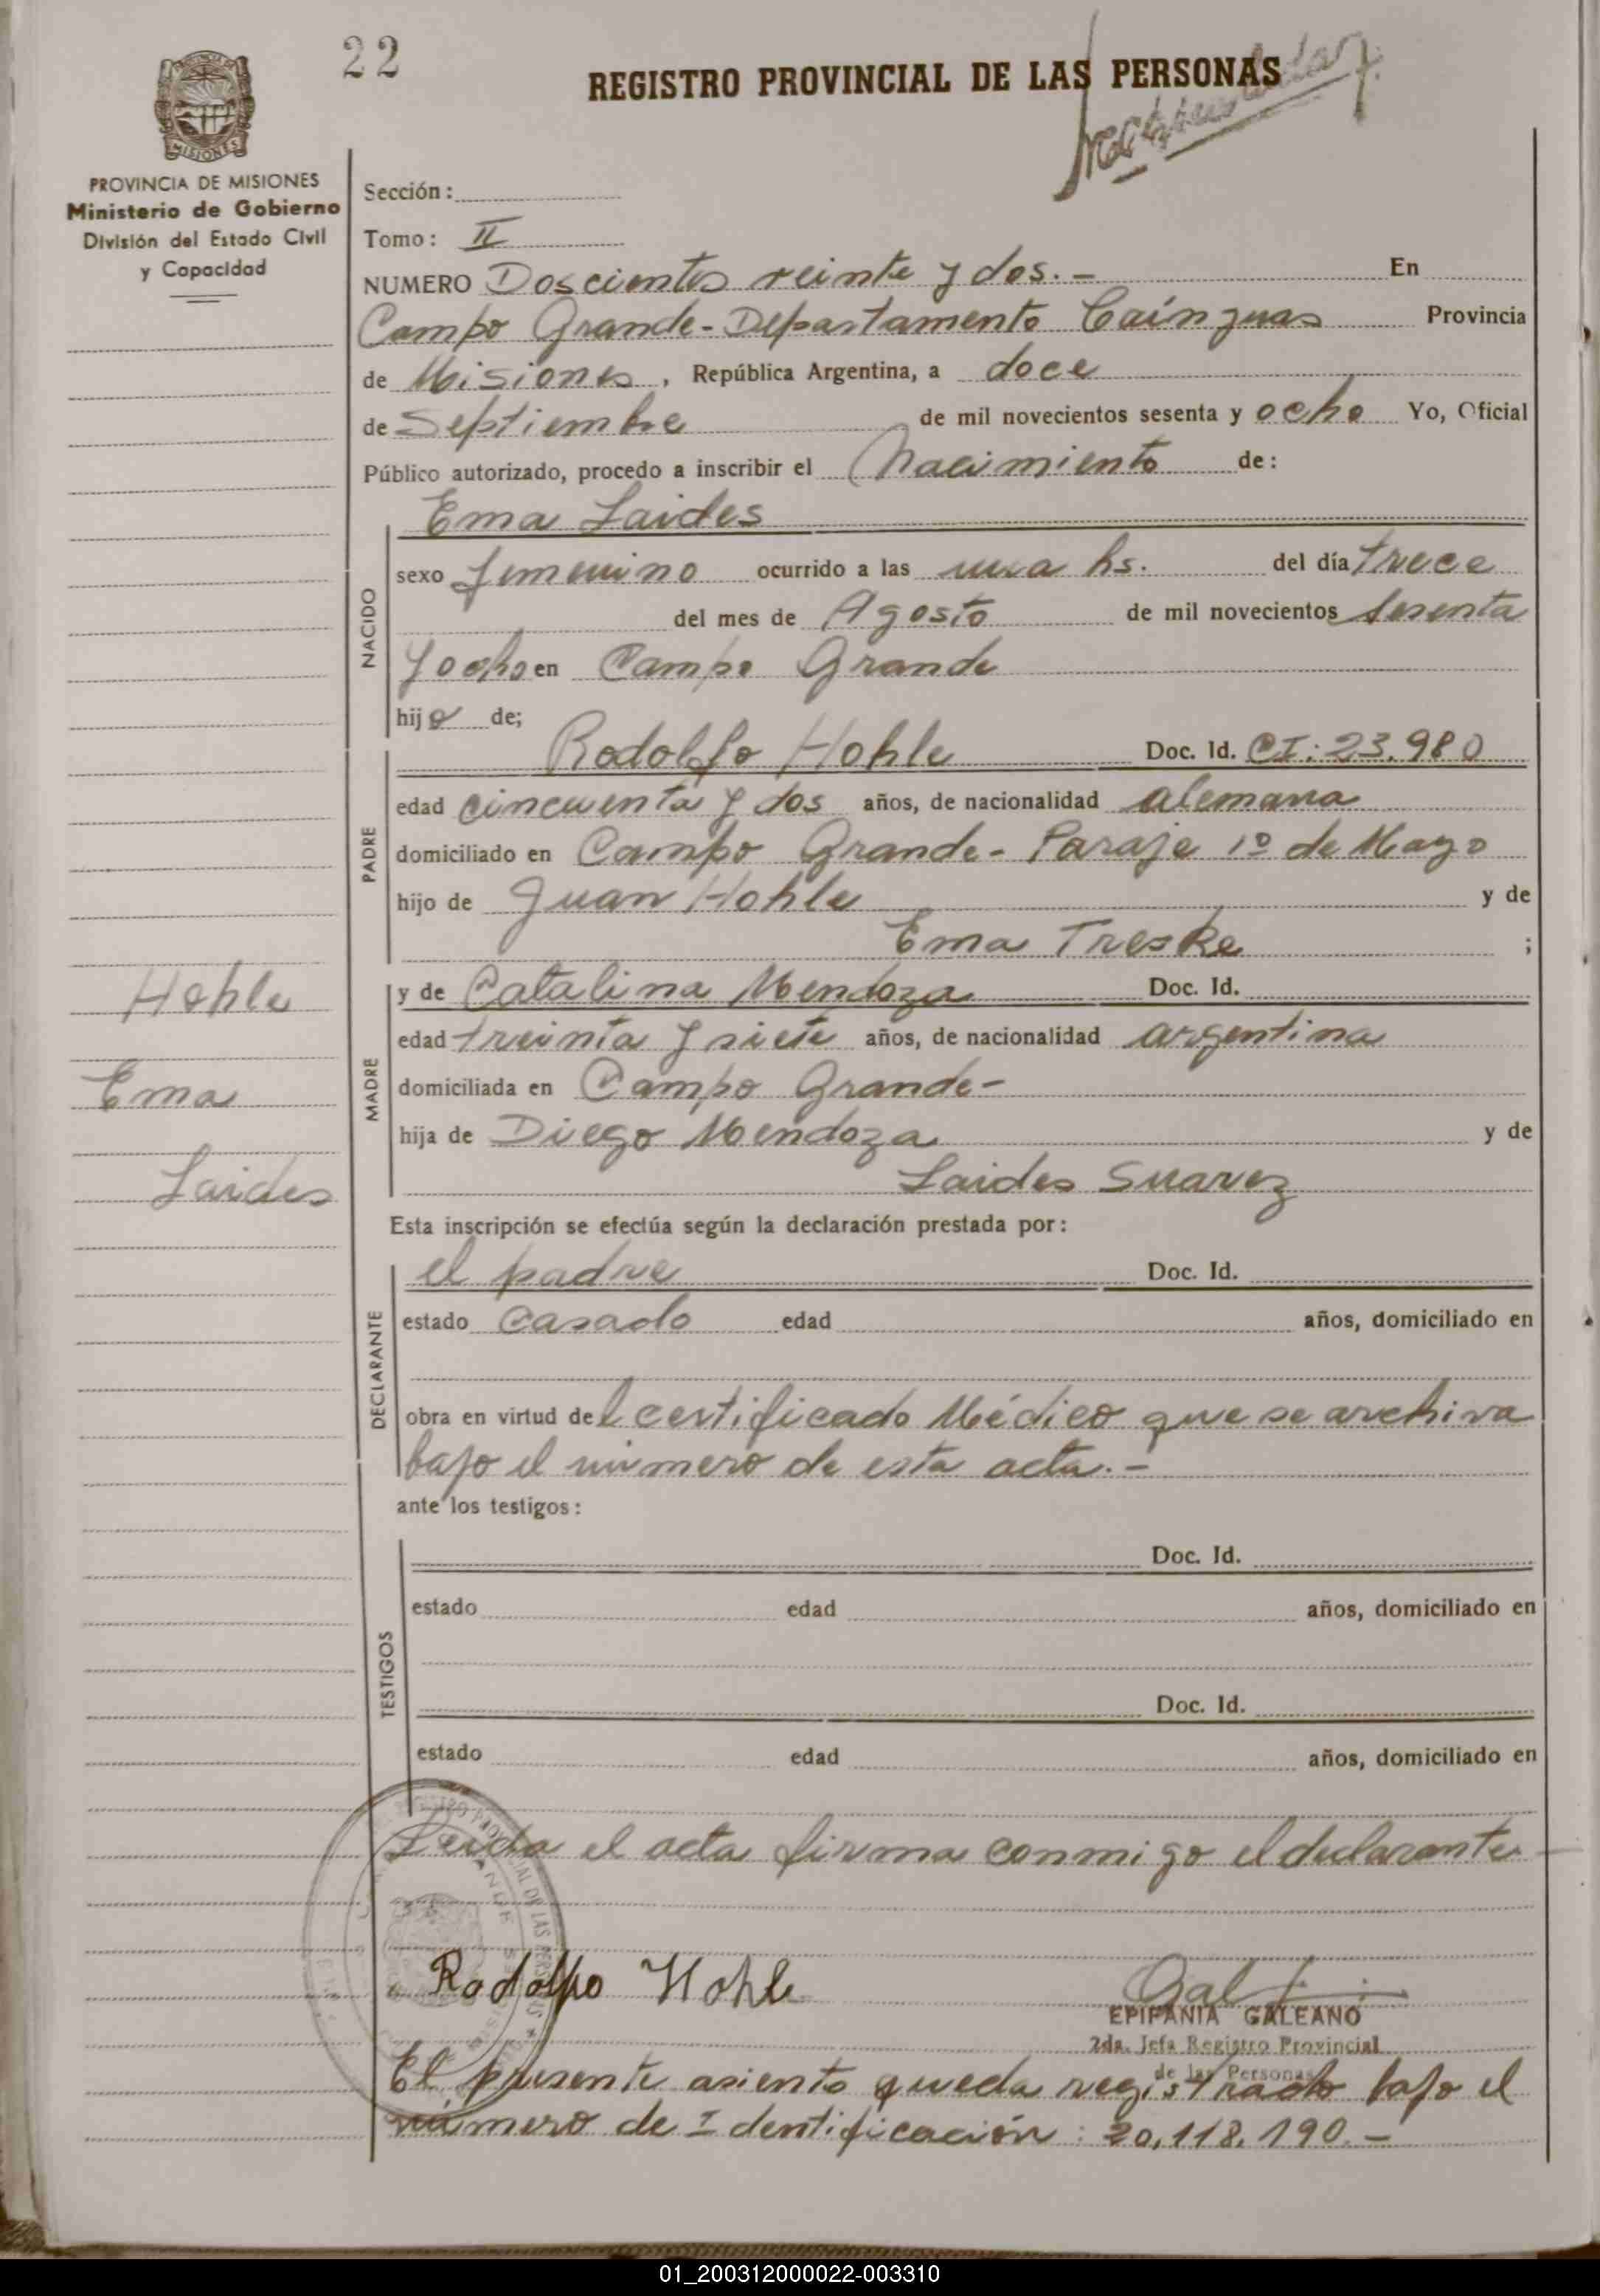 22
REGISTRO PROVINCIAL DE LAS PERSONAS
MISIONES
PROVINCIA DE MISIONES
Ministerio de Gobierno
División del Estado Civil
y Capacidad
Sección:
Tomo: II
NUMERO Doscientos veinte y dos.- En
Campo Grande-Departamento Caínguas Provincia
de Misiones, República Argentina, a doce
de Septiembre de mil novecientos sesenta y ocho Yo, Oficial
Público autorizado, procedo a inscribir el Nacimiento de:
Ema Laides
NACIDO
sexo femenino ocurrido a las una hs. del día trece
del mes de Agosto de mil novecientos sesenta
y ocho en Campo Grande
hija de;
PADRE
Rodolfo Hohle Doc. Id. CI: 23.980
edad cincuenta y dos años, de nacionalidad alemana
domiciliado en Campo Grande- Paraje 1º de Mayo
hijo de Juan Hohle y de
Ema Treske ;
Hohle
Ema
Laides
MADRE
y de Catalina Mendoza Doc. Id.
edad treinta y siete años, de nacionalidad argentina
domiciliada en Campo Grande-
hija de Diego Mendoza y de
Laides Suarez
Esta inscripción se efectúa según la declaración prestada por:
DECLARANTE
el padre Doc. Id.
estado casado edad años, domiciliado en
obra en virtud del certificado Médico que se archiva
bajo el número de esta acta.-
ante los testigos:
TESTIGOS
Doc. Id.
estado edad años, domiciliado en
Doc. Id.
estado edad años, domiciliado en
Leida el acta firma conmigo el declarante
Rodolfo Hohle
EPIFANIA GALEANO
2da. Jefa Registro Provincial
de las Personas
El presente asiento queda registrado bajo el
número de Identificación: 20.118.190.-
01_200312000022-003310